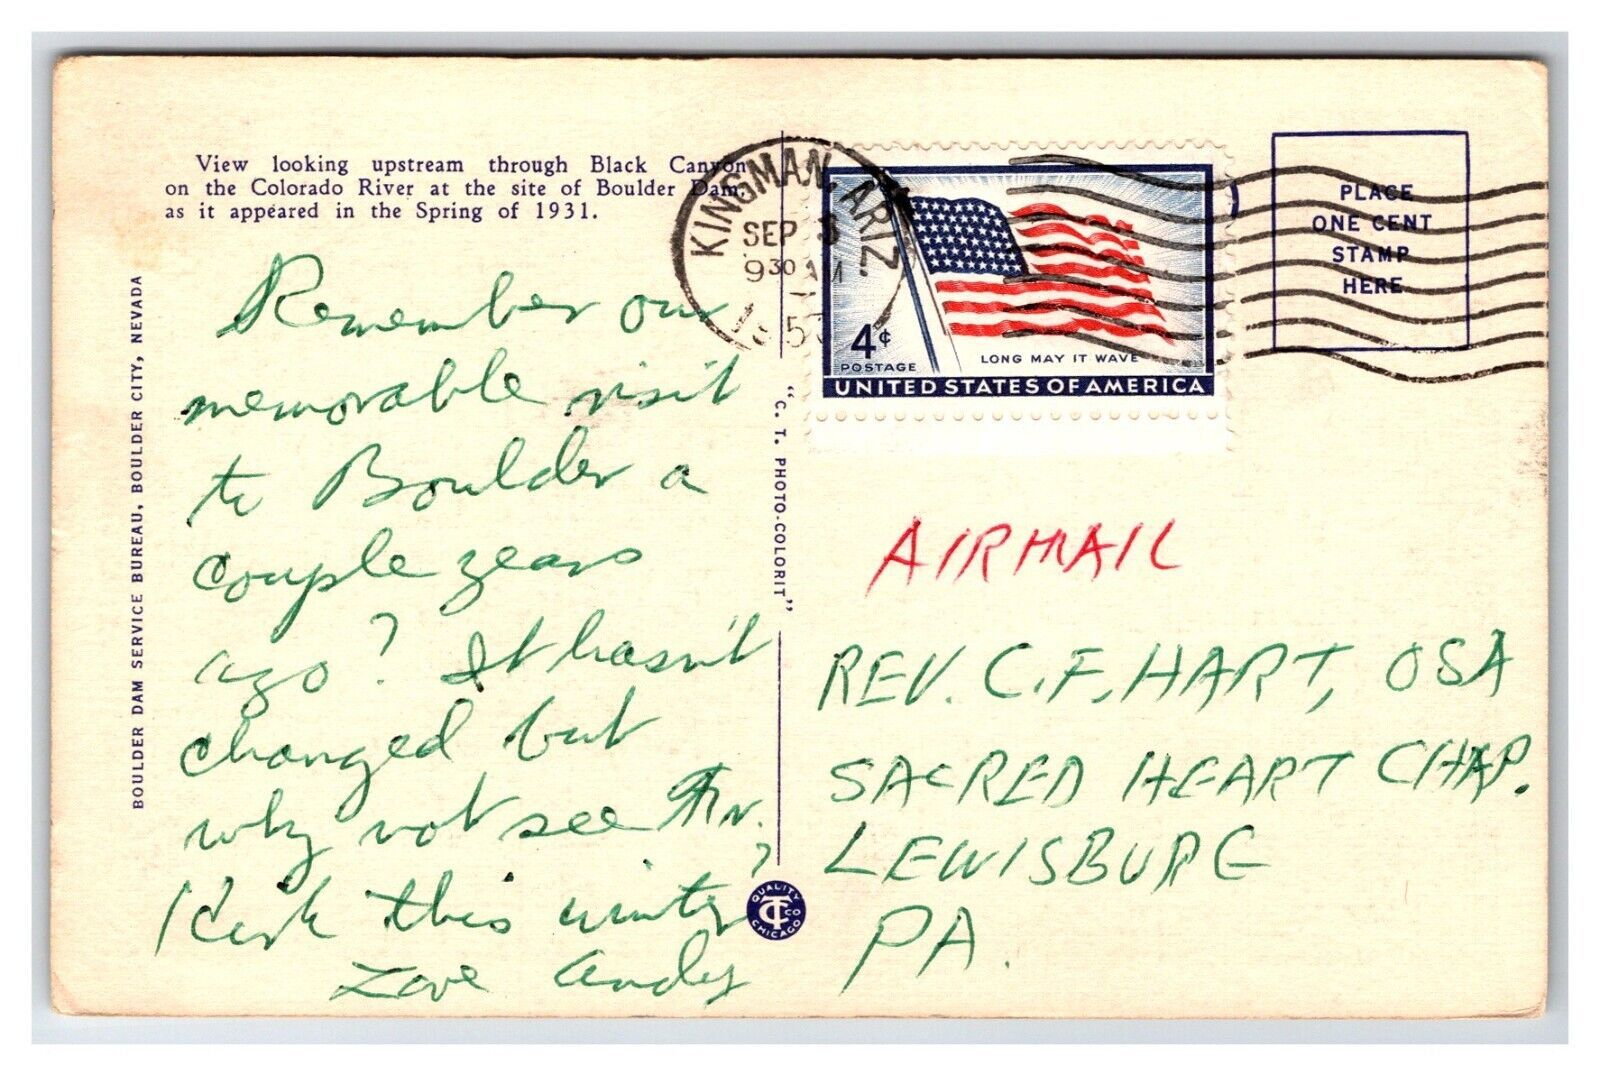 View looking upstream through Black Canyon
on the Colorado River at the site of Boulder Dam,
as it appeared in the Spring of 1931.
BOULDER DAM SERVICE BUREAU, BOULDER CITY, NEVADA
Remember our
memorable visit
to Boulder a
couple years
ago? It hasn't
changed but
why not see
this winter?
Love Andy
"C. T. PHOTO-COLORIT"
QUALITY
CT CO
CHICAGO
KINGMAN, ARIZ.
SEP
9 30 AM
4¢
POSTAGE
LONG MAY IT WAVE
UNITED STATES OF AMERICA
PLACE
ONE CENT
STAMP
HERE
AIRMAIL
REV. C.F. HART, OSA
SACRED HEART CHAP.
LEWISBURG
PA.